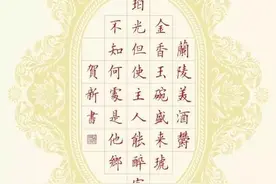 蘭陵美酒鬱
金香玉碗盛來琥
珀光但使主人能醉客
不知何處是他鄉
賀新書